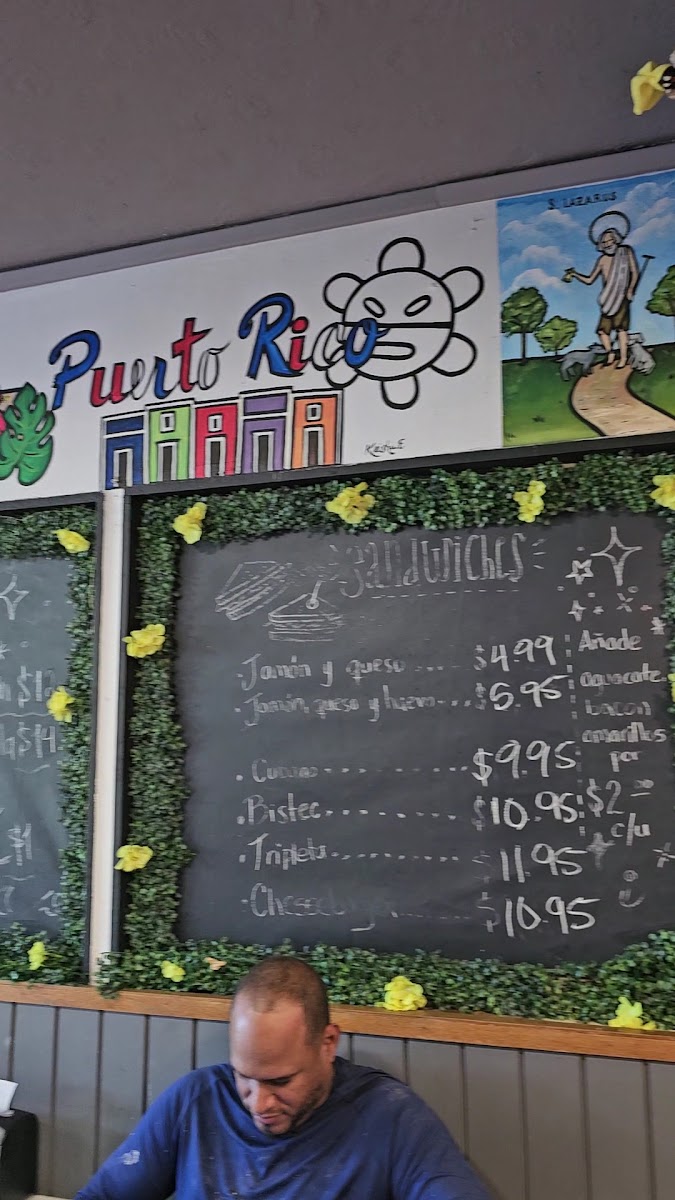 S. LAZARUS
Puerto Rico
Sandwiches
. Jamón y queso .... $4.99
. Jamón, queso y huevo .... $5.95
. Cubano ......... $9.95
. Bistec ........ $10.95
. Tripleta .......... 11.95
. $10.95
Añade
aguacate
bacon
amarillos
por
$2.00
c/u
$14